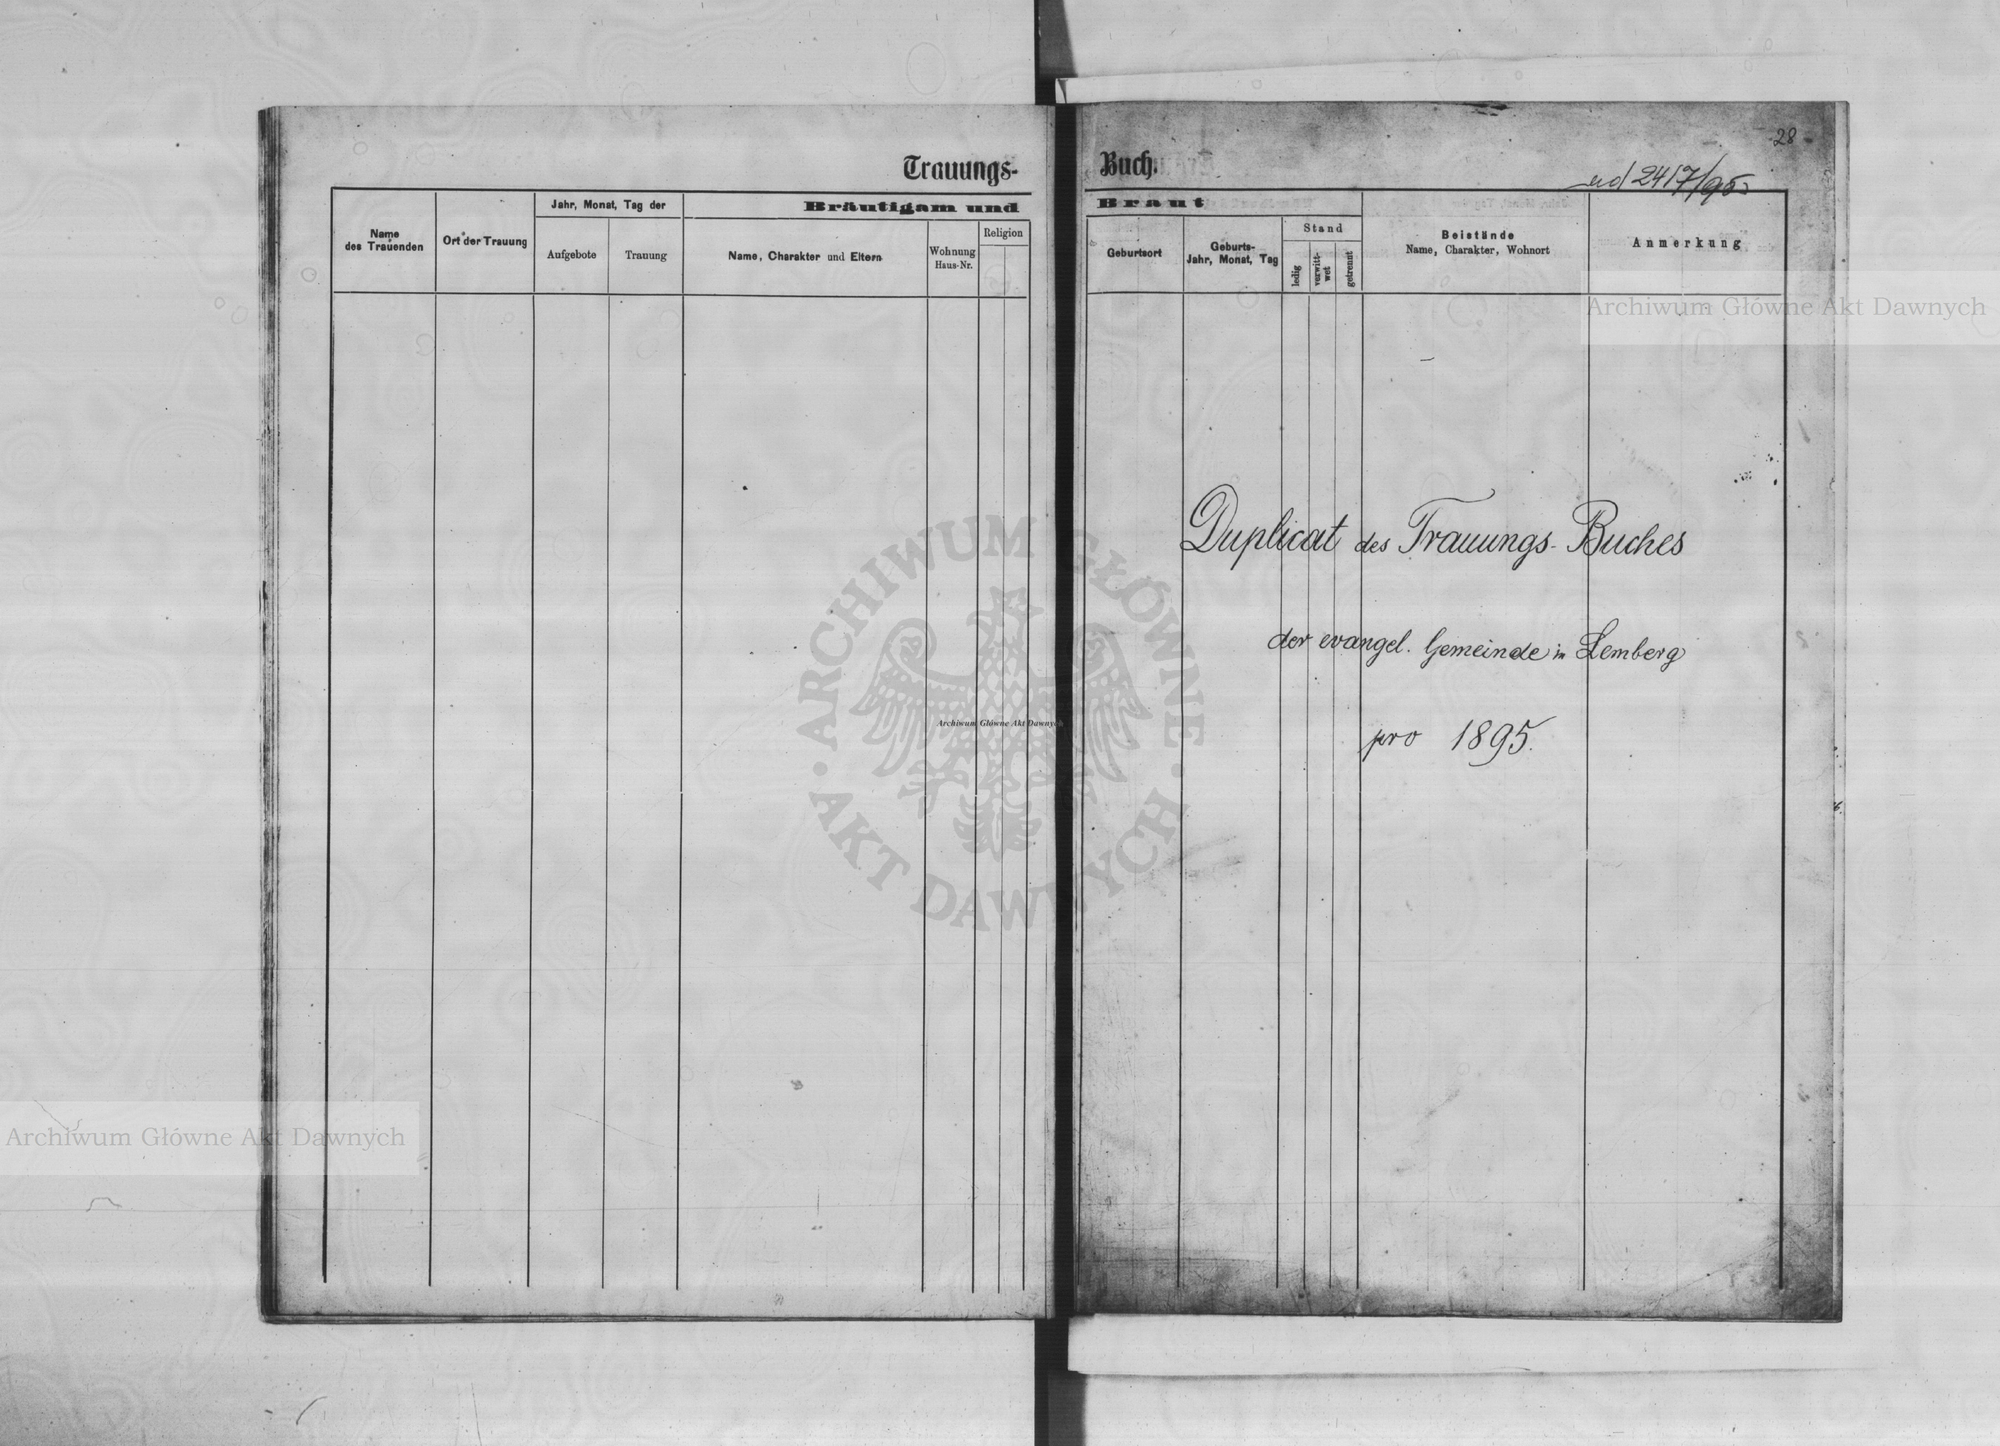 28
ad 2417/95
Trauungs- Buch.
Name
des Trauenden
Ort der Trauung
Jahr, Monat, Tag der
Aufgebote
Trauung
Bräutigam und Braut
Name, Charakter und Eltern
Wohnung
Haus-Nr.
Religion
Geburtsort
Geburts-
Jahr, Monat, Tag
Stand
ledig
verwitt-
wet
getrennt
Beistände
Name, Charakter, Wohnort
Anmerkung
Duplicat des Trauungs-Buches
der evangel. Gemeinde in Lemberg
pro 1895.
Archiwum Główne Akt Dawnych
ARCHIWUM GŁÓWNE
AKT DAWNYCH
Archiwum Główne Akt Dawnych
Archiwum Główne Akt Dawnych